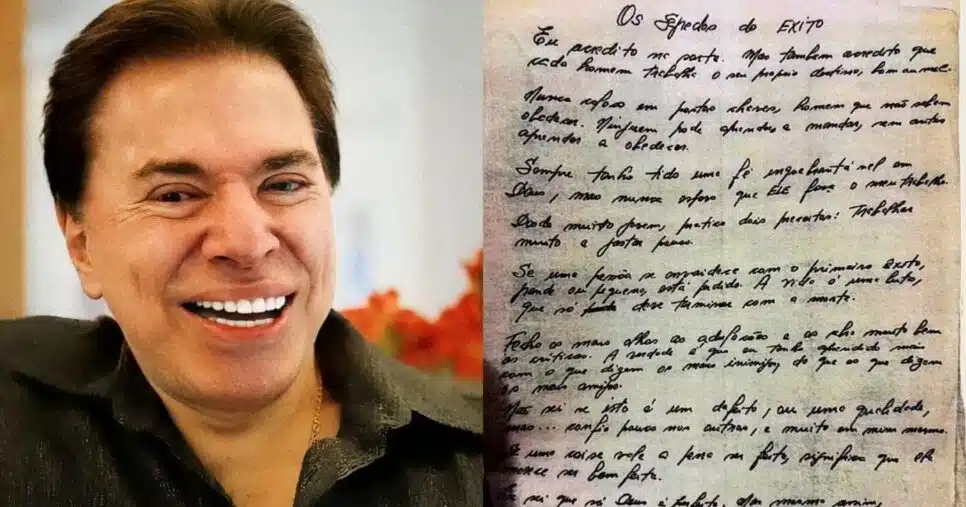 Os Segredos do EXITO
Eu acredito na sorte. Mas também acredito que
cada homem trabalha o seu próprio destino, bom ou mal.
Nunca coloco em postos chaves, homem que não sabem
obedecer. Ninguem pode aprender a mandar, sem antes
aprender a obedecer.
Sempre tenho tido uma fé inquebrantável em
Deus, mas nunca espero que ELE faça o meu trabalho.
Desde muito jovem, pratico dois preceitos: Trabalhar
muito e gastar pouco.
Se uma pessoa se envaidece com o primeiro êxito,
grande ou pequeno, está perdido. A vida é uma luta,
que só deve terminar com a morte.
Fecho os meus olhos as adulações e os abro muito bem
as criticas. A verdade é que eu tenho aprendido mais
com o que dizem os meus inimigos, do que ao que dizem
os meus amigos.
Não sei se isto é um defeito, ou uma qualidade,
mas... confio pouco nos outros, e muito em mim mesmo.
Se uma coisa vale a pena ser feita, significa que ela
merece ser bem feita.
sei que só Deus é perfeito. Mas mesmo assim,